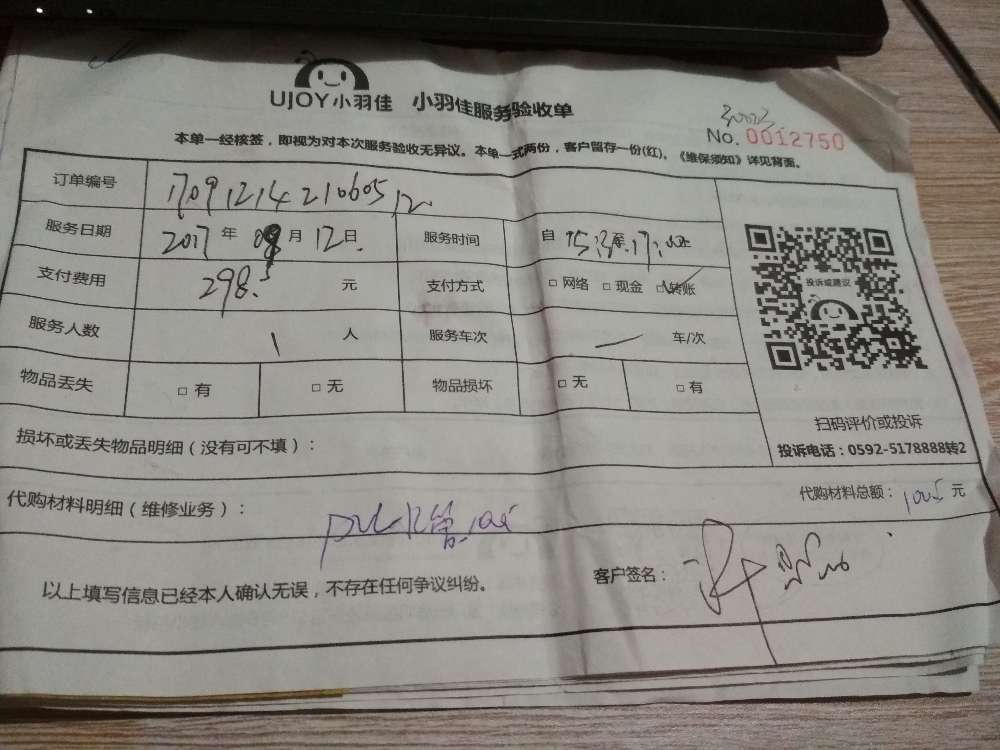 UJOY小羽佳 小羽佳服务验收单
No. 0012750
本单一经核签，即视为对本次服务验收无异议。本单一式两份，客户留存一份(红)。《维保须知》详见背面。
订单编号 170912142106052
服务日期 2017 年 09 月 12 日 服务时间 自 15:30 至 17:
支付费用 298.5 元 支付方式 □ 网络 □ 现金 □ 转账
服务人数 1 人 服务车次 一 车/次
物品丢失 □ 有 □ 无 物品损坏 □ 无 □ 有
投诉或建议
扫码评价或投诉
投诉电话：0592-5178888转2
损坏或丢失物品明细（没有可不填）：
代购材料明细（维修业务）： 代购材料总额： 元
以上填写信息已经本人确认无误，不存在任何争议纠纷。 客户签名：